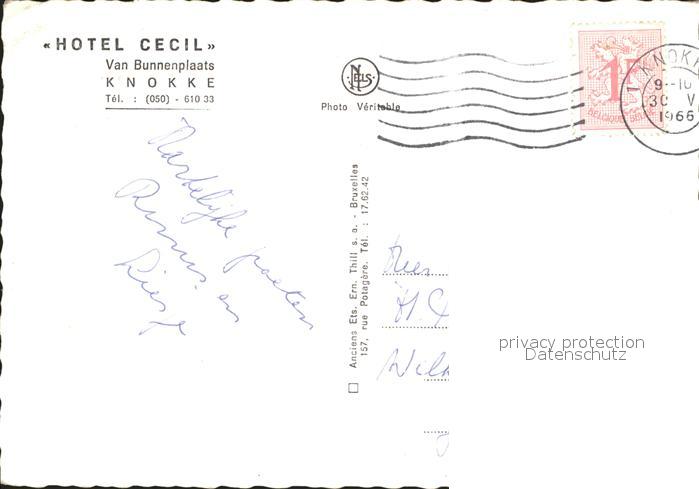 «HOTEL CECIL»
Van Bunnenplaats
KNOKKE
Tél. : (050) - 610 33
NELS
Photo Véritable
1F
BELGIQUE BELGIË
1 KNOKKE
9-10
30 V
1966
Hartelijke groeten
en
Anciens Ets. Ern. Thill s. a. - Bruxelles
157, rue Potagère. Tél. : 17.62.42
privacy protection
Datenschutz